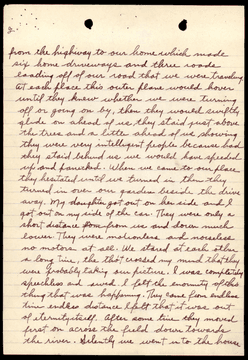 2.
from the highway to our home which made
six home driveways and three roads
leading off of our road that we were traveling
at each place this outer plane would hover
until they knew whether we were turning
off or going on by, then they would swiftly
glide on ahead of us, they staid just above
the trees and a little ahead of us showing
they were very intelligent people because had
they staid behind us we would have speeded
up and panicked. When we came to our place
they hesitated until we turned in, then they
turned in over our garden beside the drive
away. My daughter got out on her side and I
got out on my side of the car. They were only a
short distance from us and down much
lower. They were motionless and noiseless
no motors at all. We stared at each other
a long time, the thot crossed my mind that they
were probably taking our picture. I was completely
speechless and awed I felt the enormity of this
thing that was happening. They came from endless
time endless distance I felt that it was out
of eternity itself. After some time they moved
first on across the field down towards
the river. Silently we went into the house